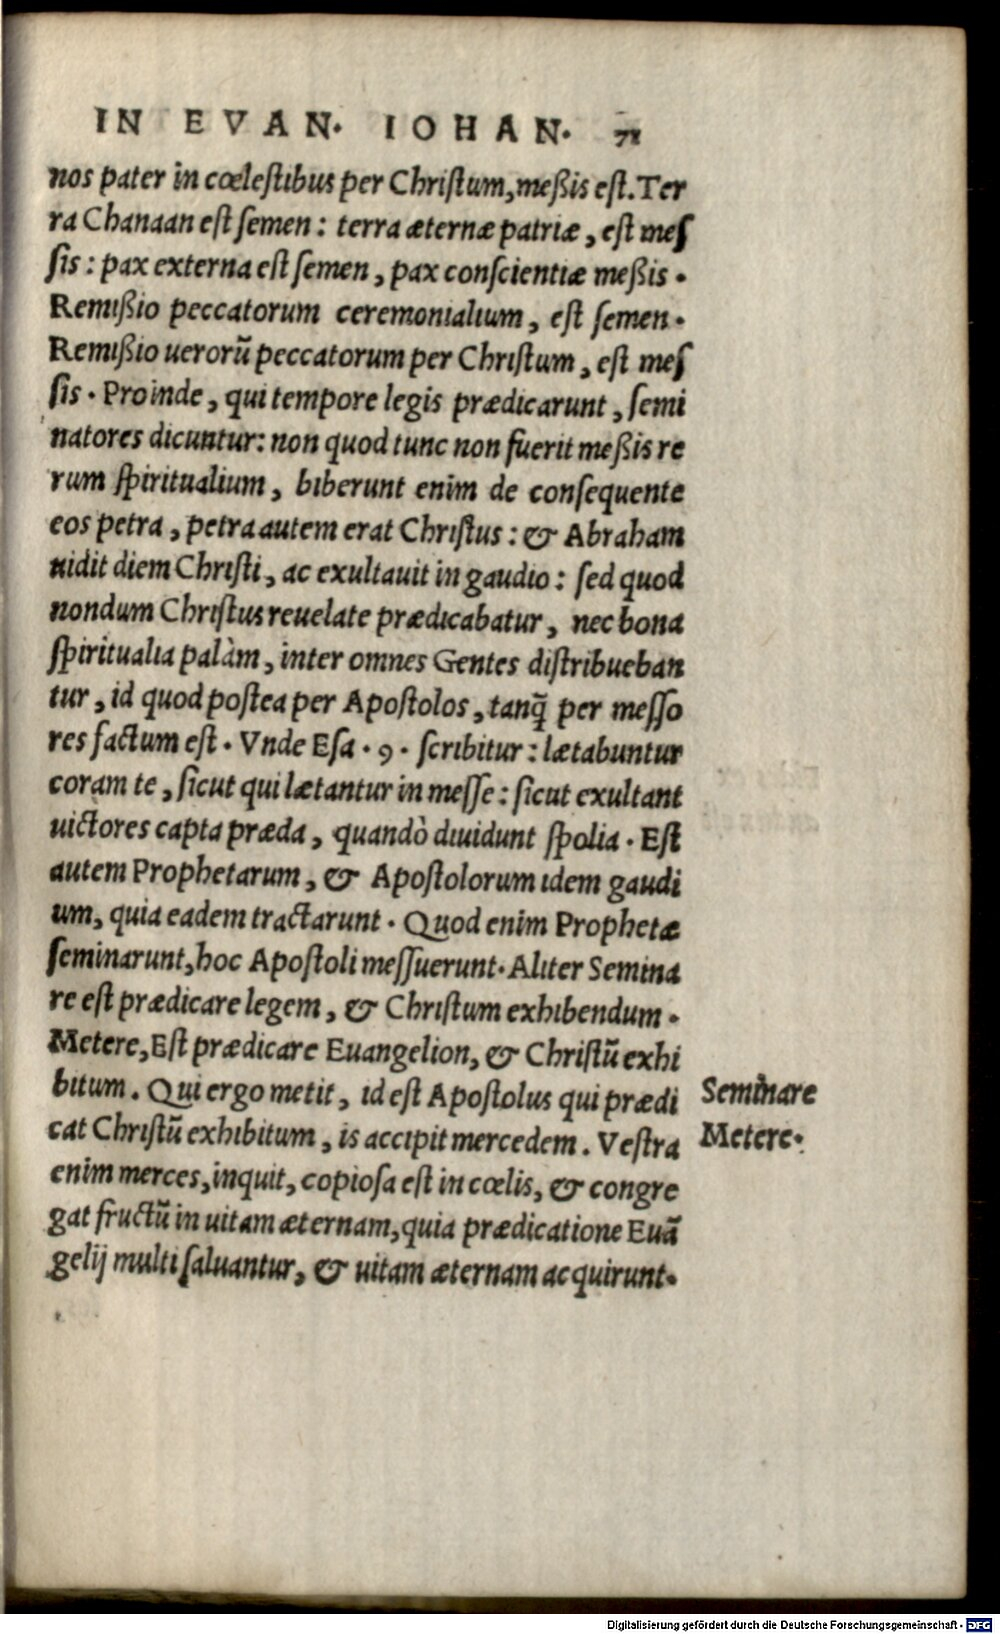 IN EVAN. IOHAN. 71
nos pater in cœlestibus per Christum, meßis est. Ter
ra Chanaan est semen: terra æternæ patriæ, est mes
sis: pax externa est semen, pax conscientiæ meßis.
Remißio peccatorum ceremonialium, est semen.
Remißio uerorū peccatorum per Christum, est mes
sis. Proinde, qui tempore legis prædicarunt, semi
natores dicuntur: non quod tunc non fuerit meßis re
rum spiritualium, biberunt enim de consequente
eos petra, petra autem erat Christus: & Abraham
uidit diem Christi, ac exultauit in gaudio: sed quod
nondum Christus reuelate prædicabatur, nec bona
spiritualia palàm, inter omnes Gentes distribueban
tur, id quod postea per Apostolos, tanq̃ per messo
res factum est. Vnde Esa. 9. scribitur: lætabuntur
coram te, sicut qui lætantur in messe: sicut exultant
uictores capta præda, quandò diuidunt spolia. Est
autem Prophetarum, & Apostolorum idem gaudi
um, quia eadem tractarunt. Quod enim Prophetæ
seminarunt, hoc Apostoli messuerunt. Aliter Semina
re est prædicare legem, & Christum exhibendum.
Metere, Est prædicare Euangelion, & Christū exhi
bitum. Qui ergo metit, id est Apostolus qui prædi
cat Christū exhibitum, is accipit mercedem. Vestra
enim merces, inquit, copiosa est in cœlis, & congre
gat fructū in uitam æternam, quia prædicatione Euā
gelij multi saluantur, & uitam æternam acquirunt.
Seminare
Metere.
Digitalisierung gefördert durch die Deutsche Forschungsgemeinschaft - DFG